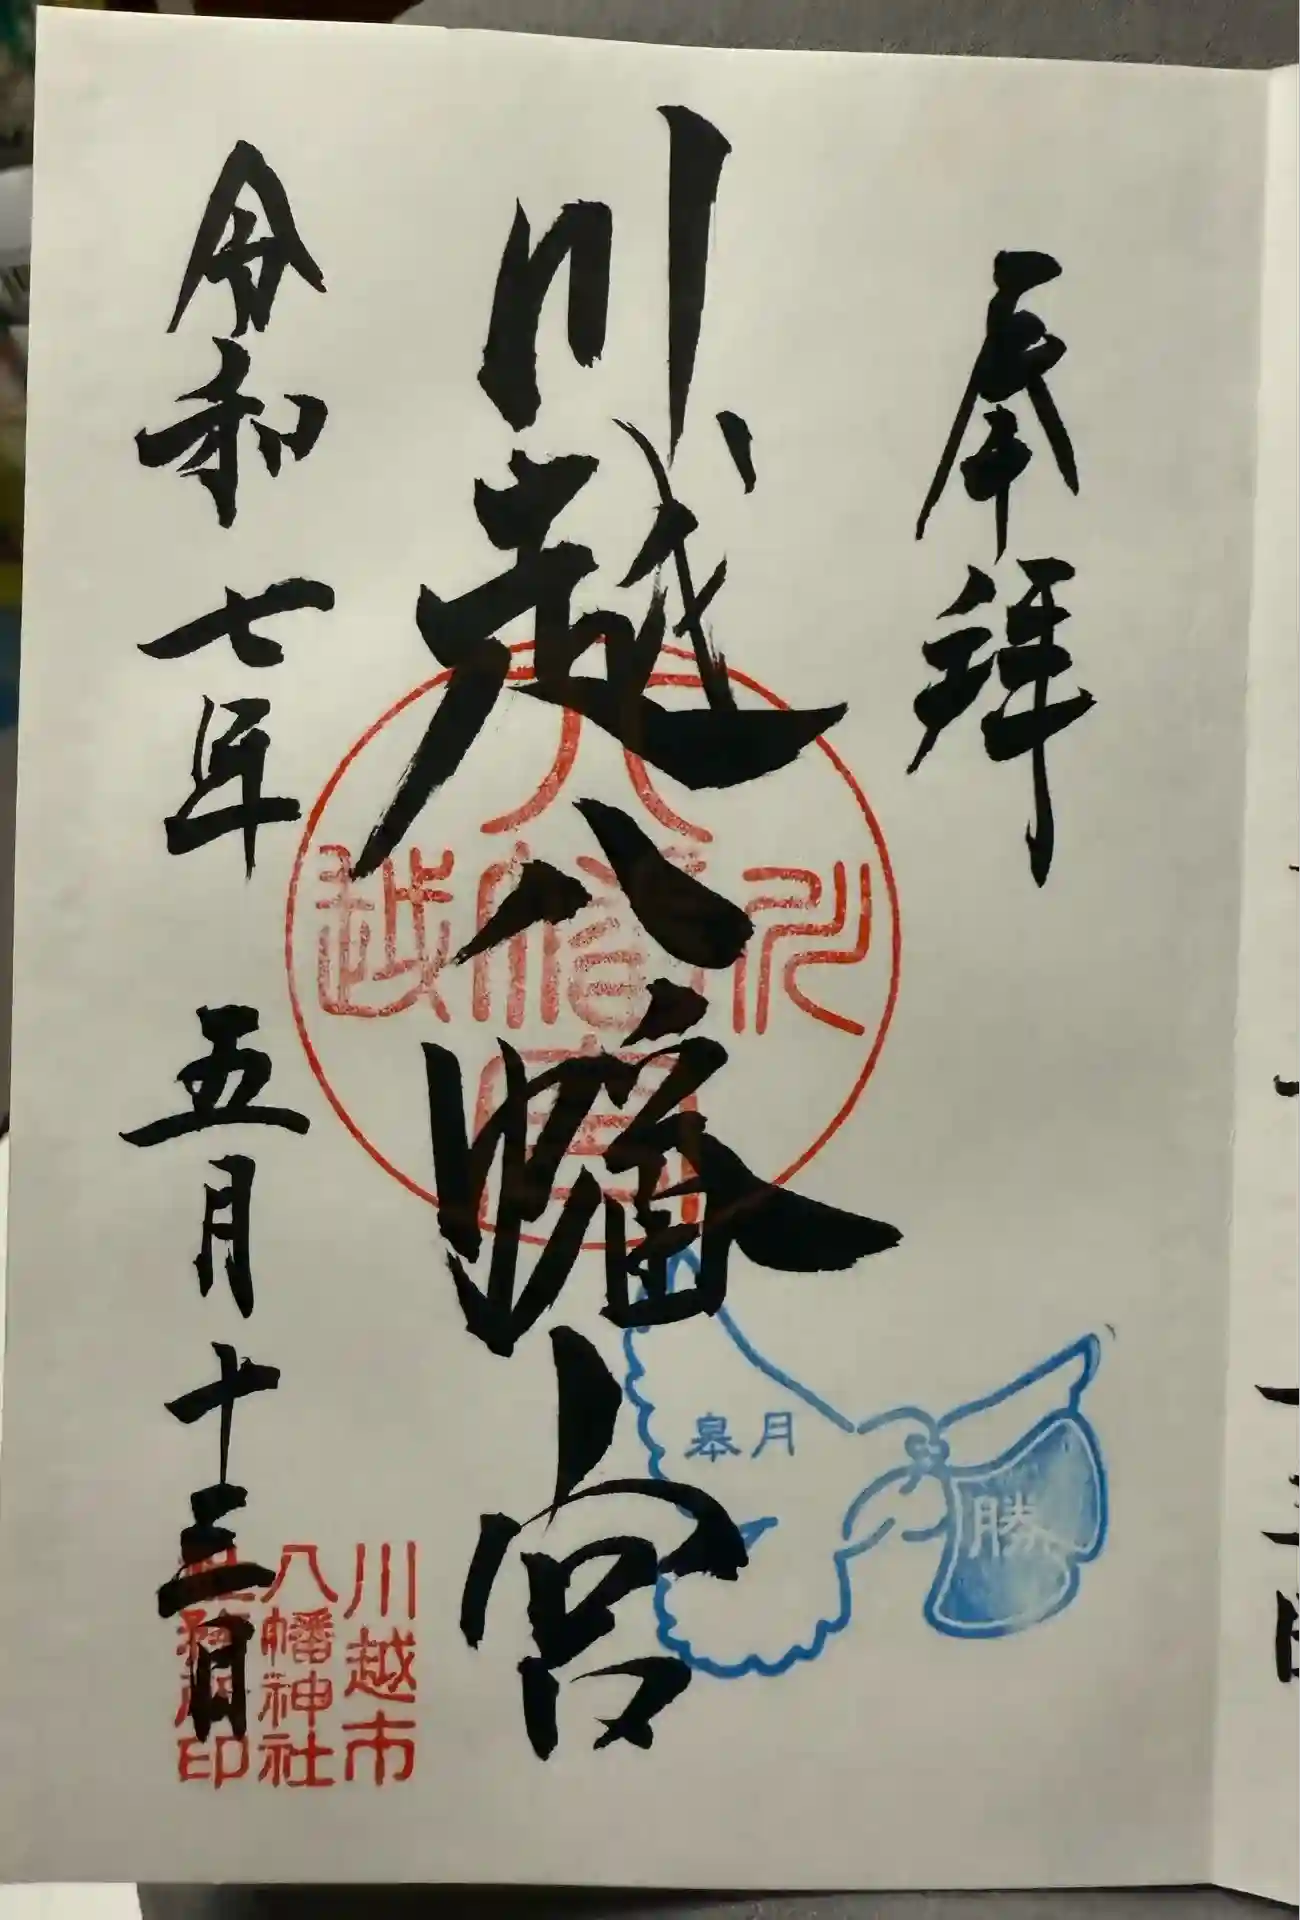 奉拝
川越八幡宮
令和七年 五月十三日
八幡宮
川越
皐月
勝
川越市
八幡神社
社務所印